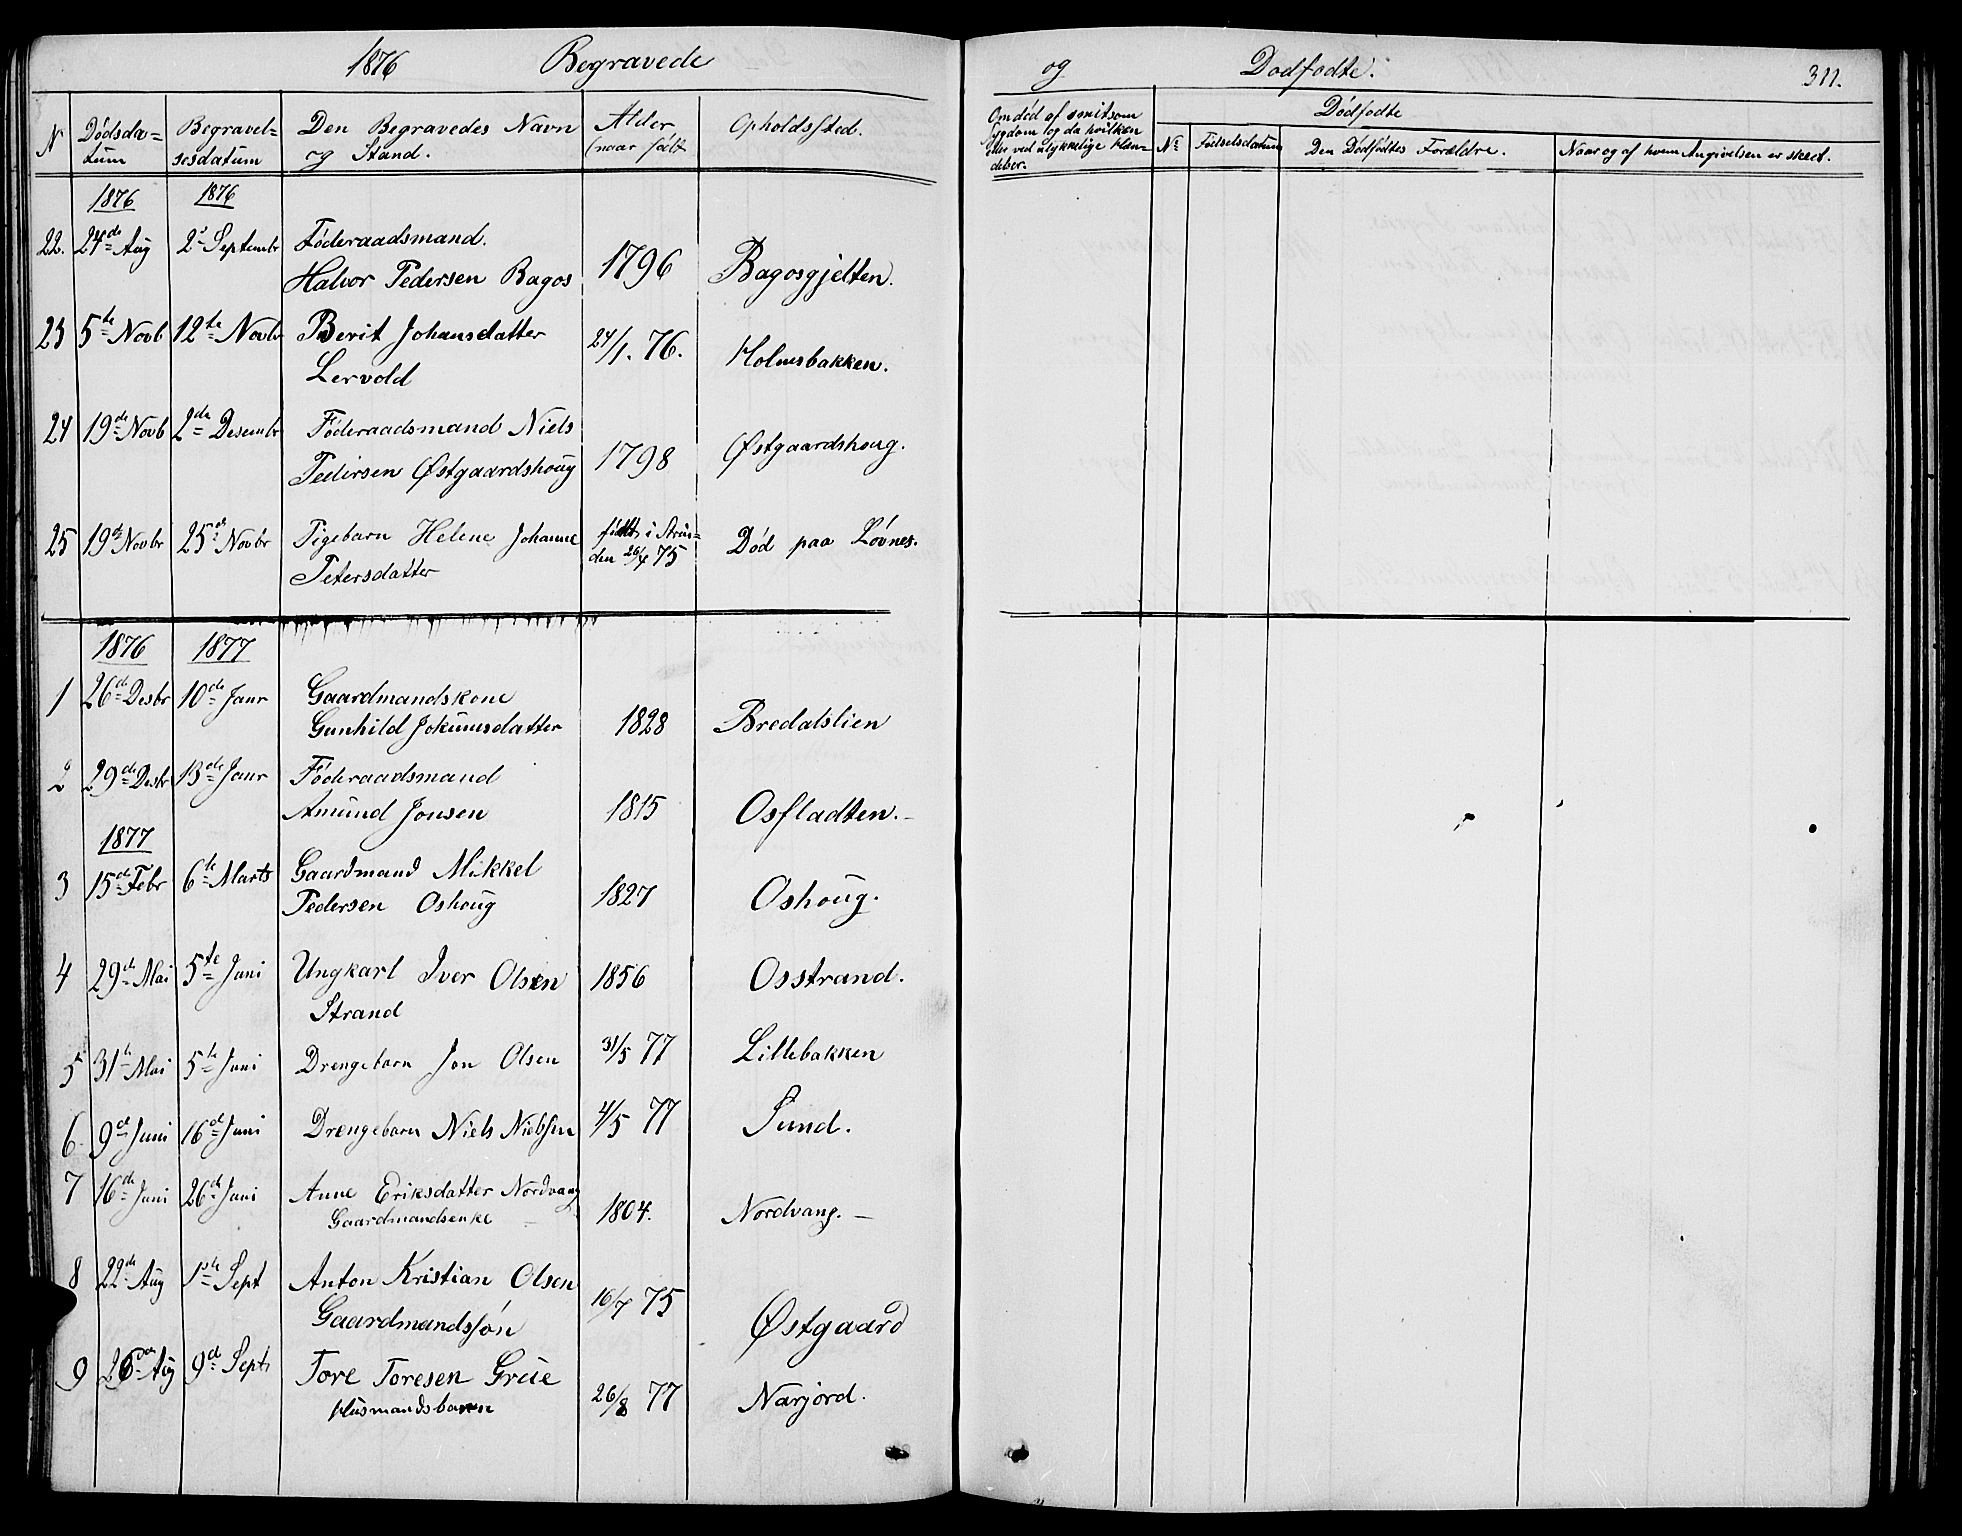 1876 Begravede og Dødfødte. 311.
N Dødsda= Begravel= Den Begravedes Navn Alder Opholdssted.
tum sesdatum og Stand. (naar født
Om død af smitsom
Sygdom og da hvilken
eller ved ulykkelige Hæn-
delser.
Dødfødte
No Fødselsdatum Den Dødfødtes Forældre. Naar og af hvem Angivelsen er skeet.
1876 1876
22. 24de Aug 2d Septembr Føderaadsmand.
Halvor Pedersen Bagos 1796 Bagosgjelten.
23 5te Novb 12te Novbr Berit Johansdatter 24/1. 76. Holmsbakken.
Lervold
24 19de Novb 2de Desembr Føderaadsmand Niels
Pedersen Østgaardshoug 1798 Østgaardshoug.
25 19d Novbr 25d Novbr Pigebarn Helene Johanne født i Strin= Død paa Løvnes.
Petersdatter den 26/4 75
1876 1877
1 26de Desbr 10de Janr Gaardmandskone
Gunhild Jokumsdatter 1828 Bredalslien
2 29de Desbr 13de Janr Føderaadsmand
Amund Jonsen 1815 Osfladten.
1877
3 15d Febr 6te Marts Gaardmand Mikkel
Pedersen Oshoug 1827 Oshoug.
4 29d Mai 5te Juni Ungkarl Iver Olsen 1856 Osstrand.
Strand
5 31te Mai 5te Juni Drengebarn Jon Olsen 31/5 77 Lillebakken
6. 9d Juni 16d Juni Drengebarn Niels Nielssen 4/5 77 Sund.
7 16de Juni 26d Juni Anne Eriksdatter Nordvang
Gaardmandsenke 1804. Nordvang.
8 22de Aug 1ste Sept Anton Kristian Olsen 16/7 75
Gaardmandssøn Østgaard
9 26de Aug 9d Sept Tore Toresen Grue 26/8 77 Narjord.
Husmandsbarn